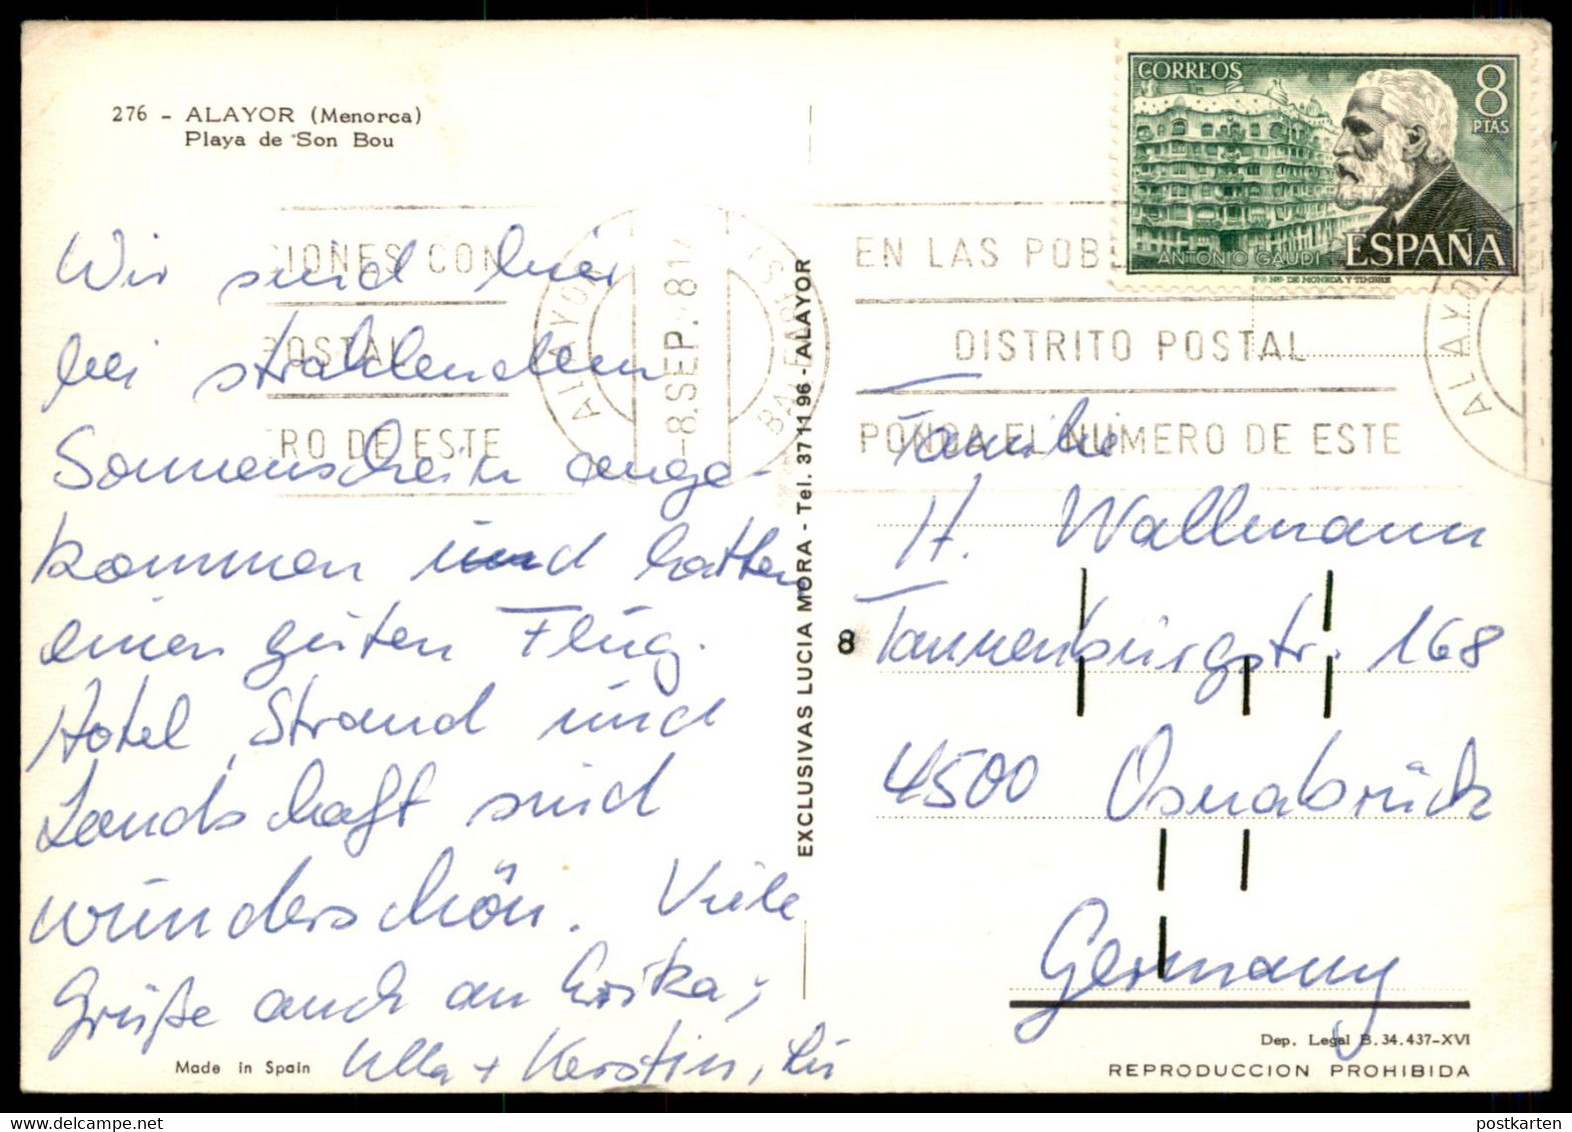 276 - ALAYOR (Menorca)
Playa de Son Bou
CORREOS
8
PTAS
ANTONIO GAUDI
ESPAÑA
F·N·M·T· DE MONEDA Y TIMBRE
CIONES CON
POSTAL
ERO DE ESTE
ALAYOR
-8.SEP.81
BALEARES
EN LAS POB
DISTRITO POSTAL
PONGA EL NUMERO DE ESTE
ALAYO
Wir sind hier
bei strahlendem
Sonnenschein ange-
kommen und hatten
einen guten Flug.
Hotel, Strand und
Landschaft sind
wunderschön. Viele
Grüße auch an Erika,
Ulla + Kerstin,
EXCLUSIVAS LUCIA MORA - Tel. 37 11 96 - ALAYOR
Familie
H. Wallmann
8
Tannenburgstr. 168
4500 Osnabrück
Germany
Made in Spain
Dep. Legal B. 34.437-XVI
REPRODUCCION PROHIBIDA
postkarten